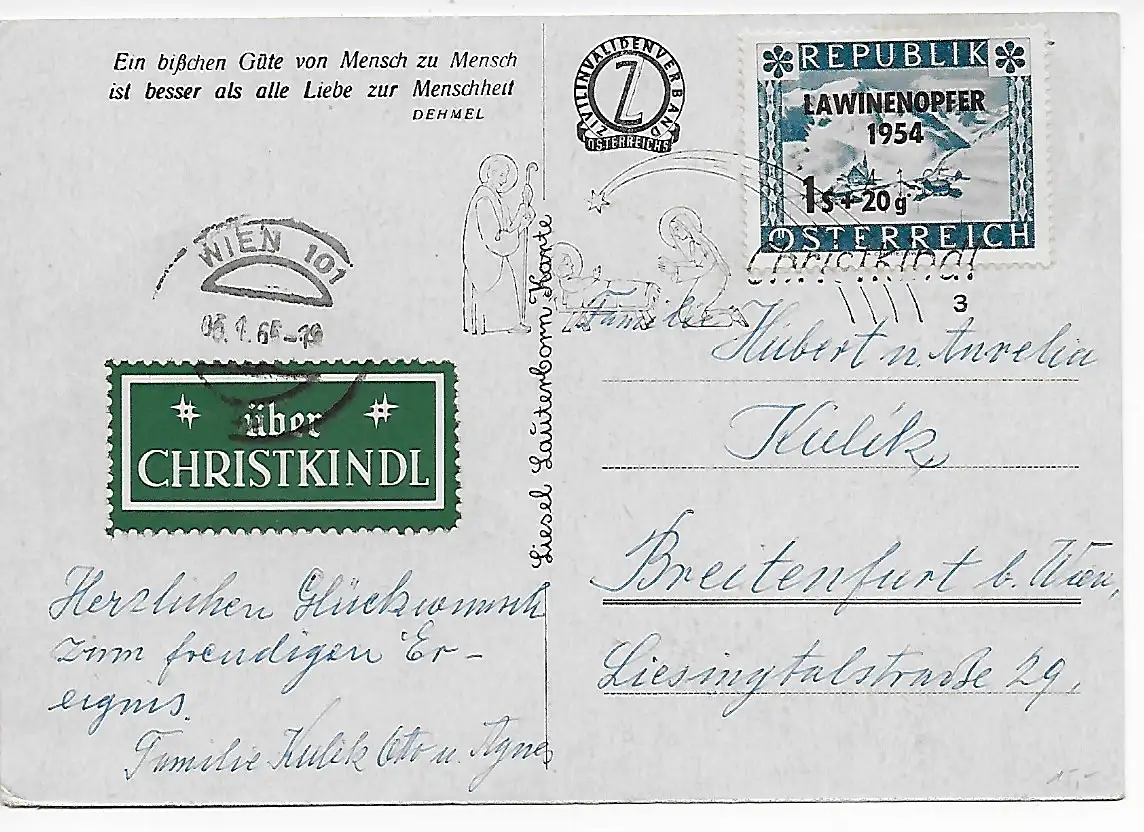 Ein bißchen Güte von Mensch zu Mensch
ist besser als alle Liebe zur Menschheit
DEHMEL
ZIVILINVALIDENVERBAND
Z
ÖSTERREICHS
REPUBLIK
LAWINENOPFER
1954
1 S + 20 g
ÖSTERREICH
Christkindl
3
WIEN 101
06.1.65-19
über
CHRISTKINDL
Liesel Lauterborn-Karte
Familie
Hubert u. Aurelia
Kulik
Breitenfurt b. Wien,
Liesingtalstraße 29,
Herzlichen Glückwunsch
zum freudigen Er-
eignis.
Familie Kulik Otto u. Agnes
15,-